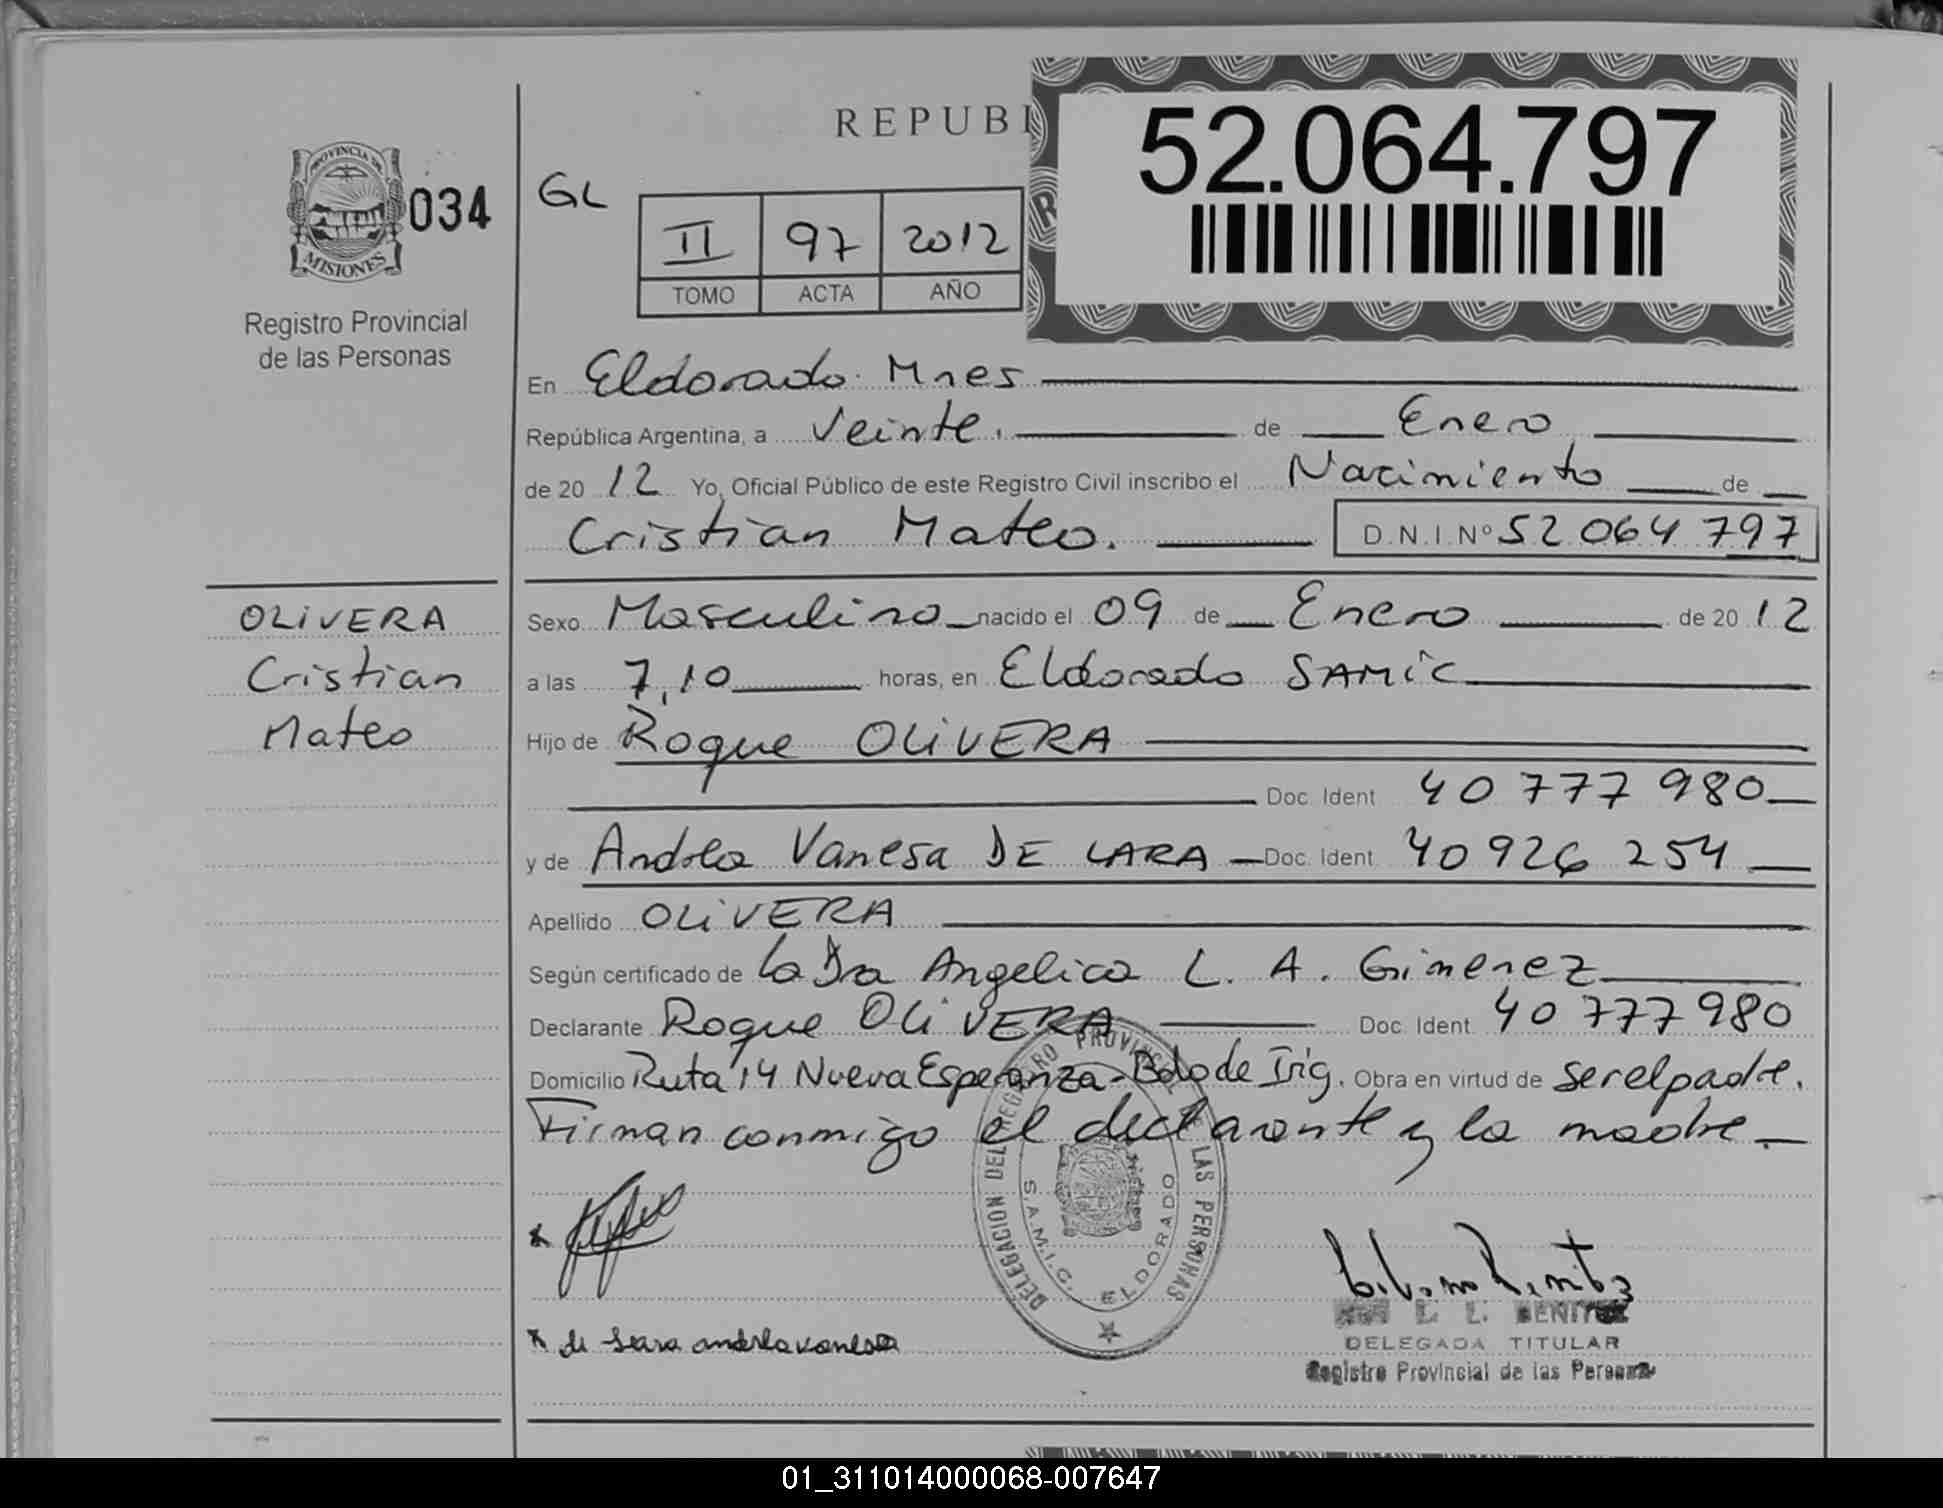 REPUBI
52.064.797
PROVINCIA DE
MISIONES
034
GL
II 97 2012
TOMO ACTA AÑO
Registro Provincial
de las Personas
En Eldorado. Mnes
República Argentina, a veinte. de Enero
de 20 12 Yo, Oficial Público de este Registro Civil inscribo el Nacimiento de
Cristian Mateo. D.N.I. Nº 52 064 797
OLIVERA
Cristian
Mateo
Sexo Masculino nacido el 09 de Enero de 20 12
a las 7,10 horas, en Eldorado SAMIC
Hijo de Roque OLIVERA
Doc. Ident 40 777 980
y de Andrea Vanesa DE LARA Doc. Ident 40 926 254
Apellido OLIVERA
Según certificado de la Dra Angelica L. A. Gimenez
Declarante Roque OLIVERA Doc. Ident. 40 777 980
Domicilio Ruta 14 Nueva Esperanza - Bdo de Irig. Obra en virtud de ser el padre.
Firman conmigo el declarante y la madre.
DELEGACION DEL REGISTRO PROVINCIAL DE LAS PERSONAS
S.A.M.I.C. ELDORADO
x
x de Lara andrea vanesa
E. L. BENITEZ
DELEGADA TITULAR
Registro Provincial de las Personas
01_311014000068-007647